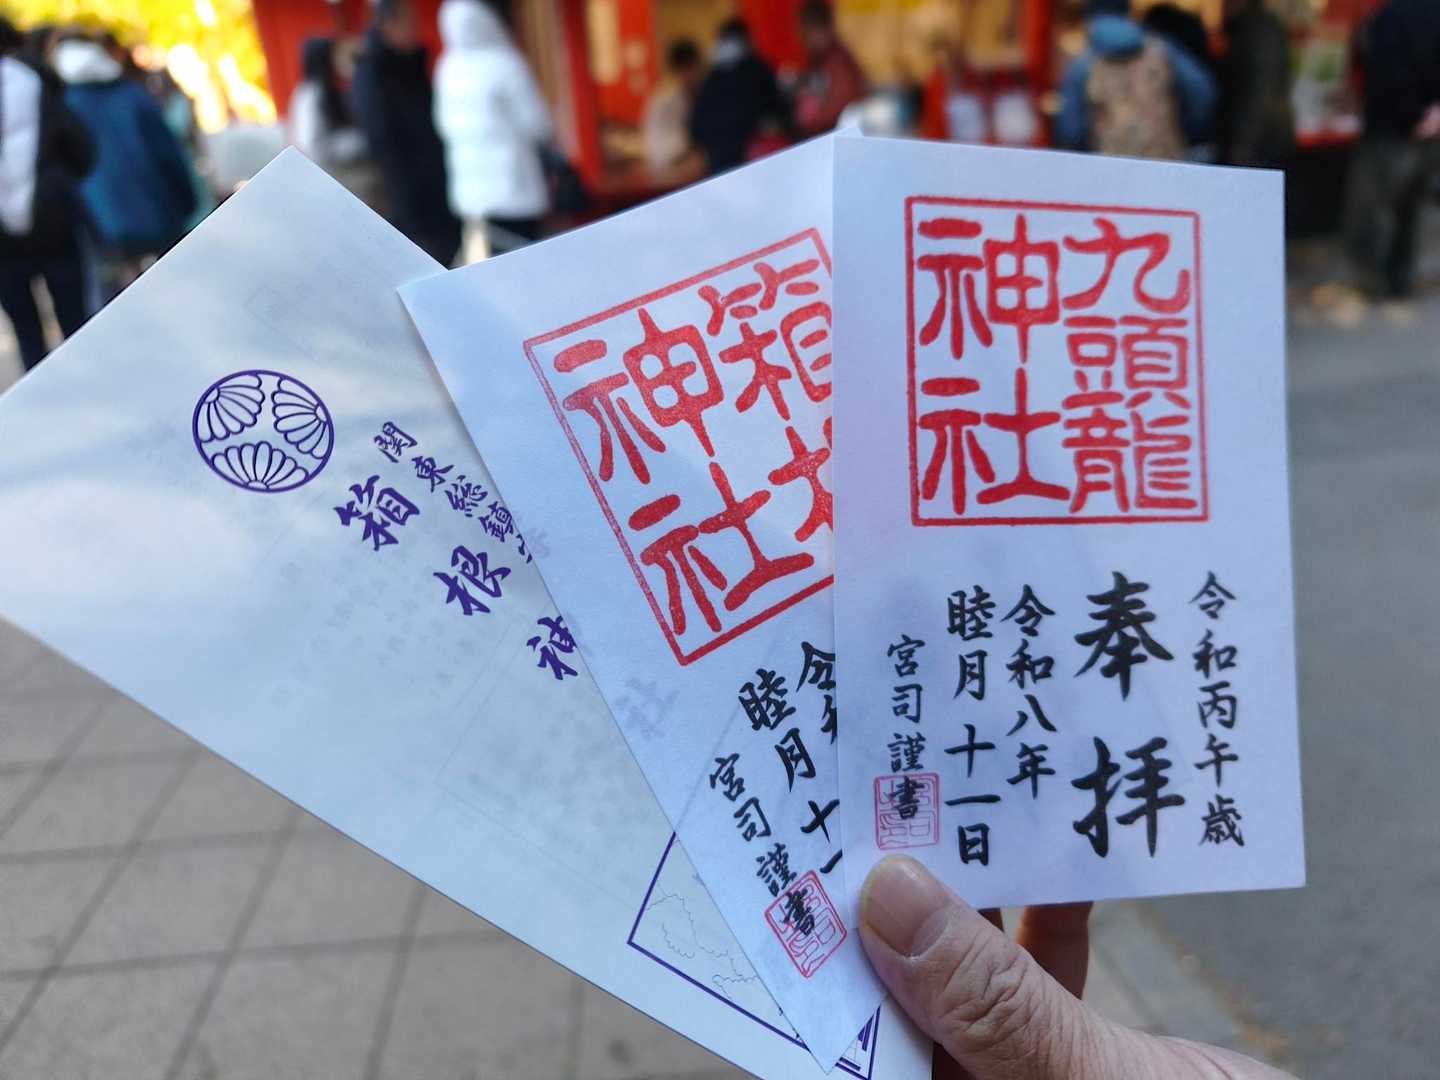 九頭龍
神社
令和丙午歳
奉拝
令和八年
睦月十一日
宮司謹書
箱根
神社
令和
睦月十一
宮司謹書
関東総鎮守
箱根神社